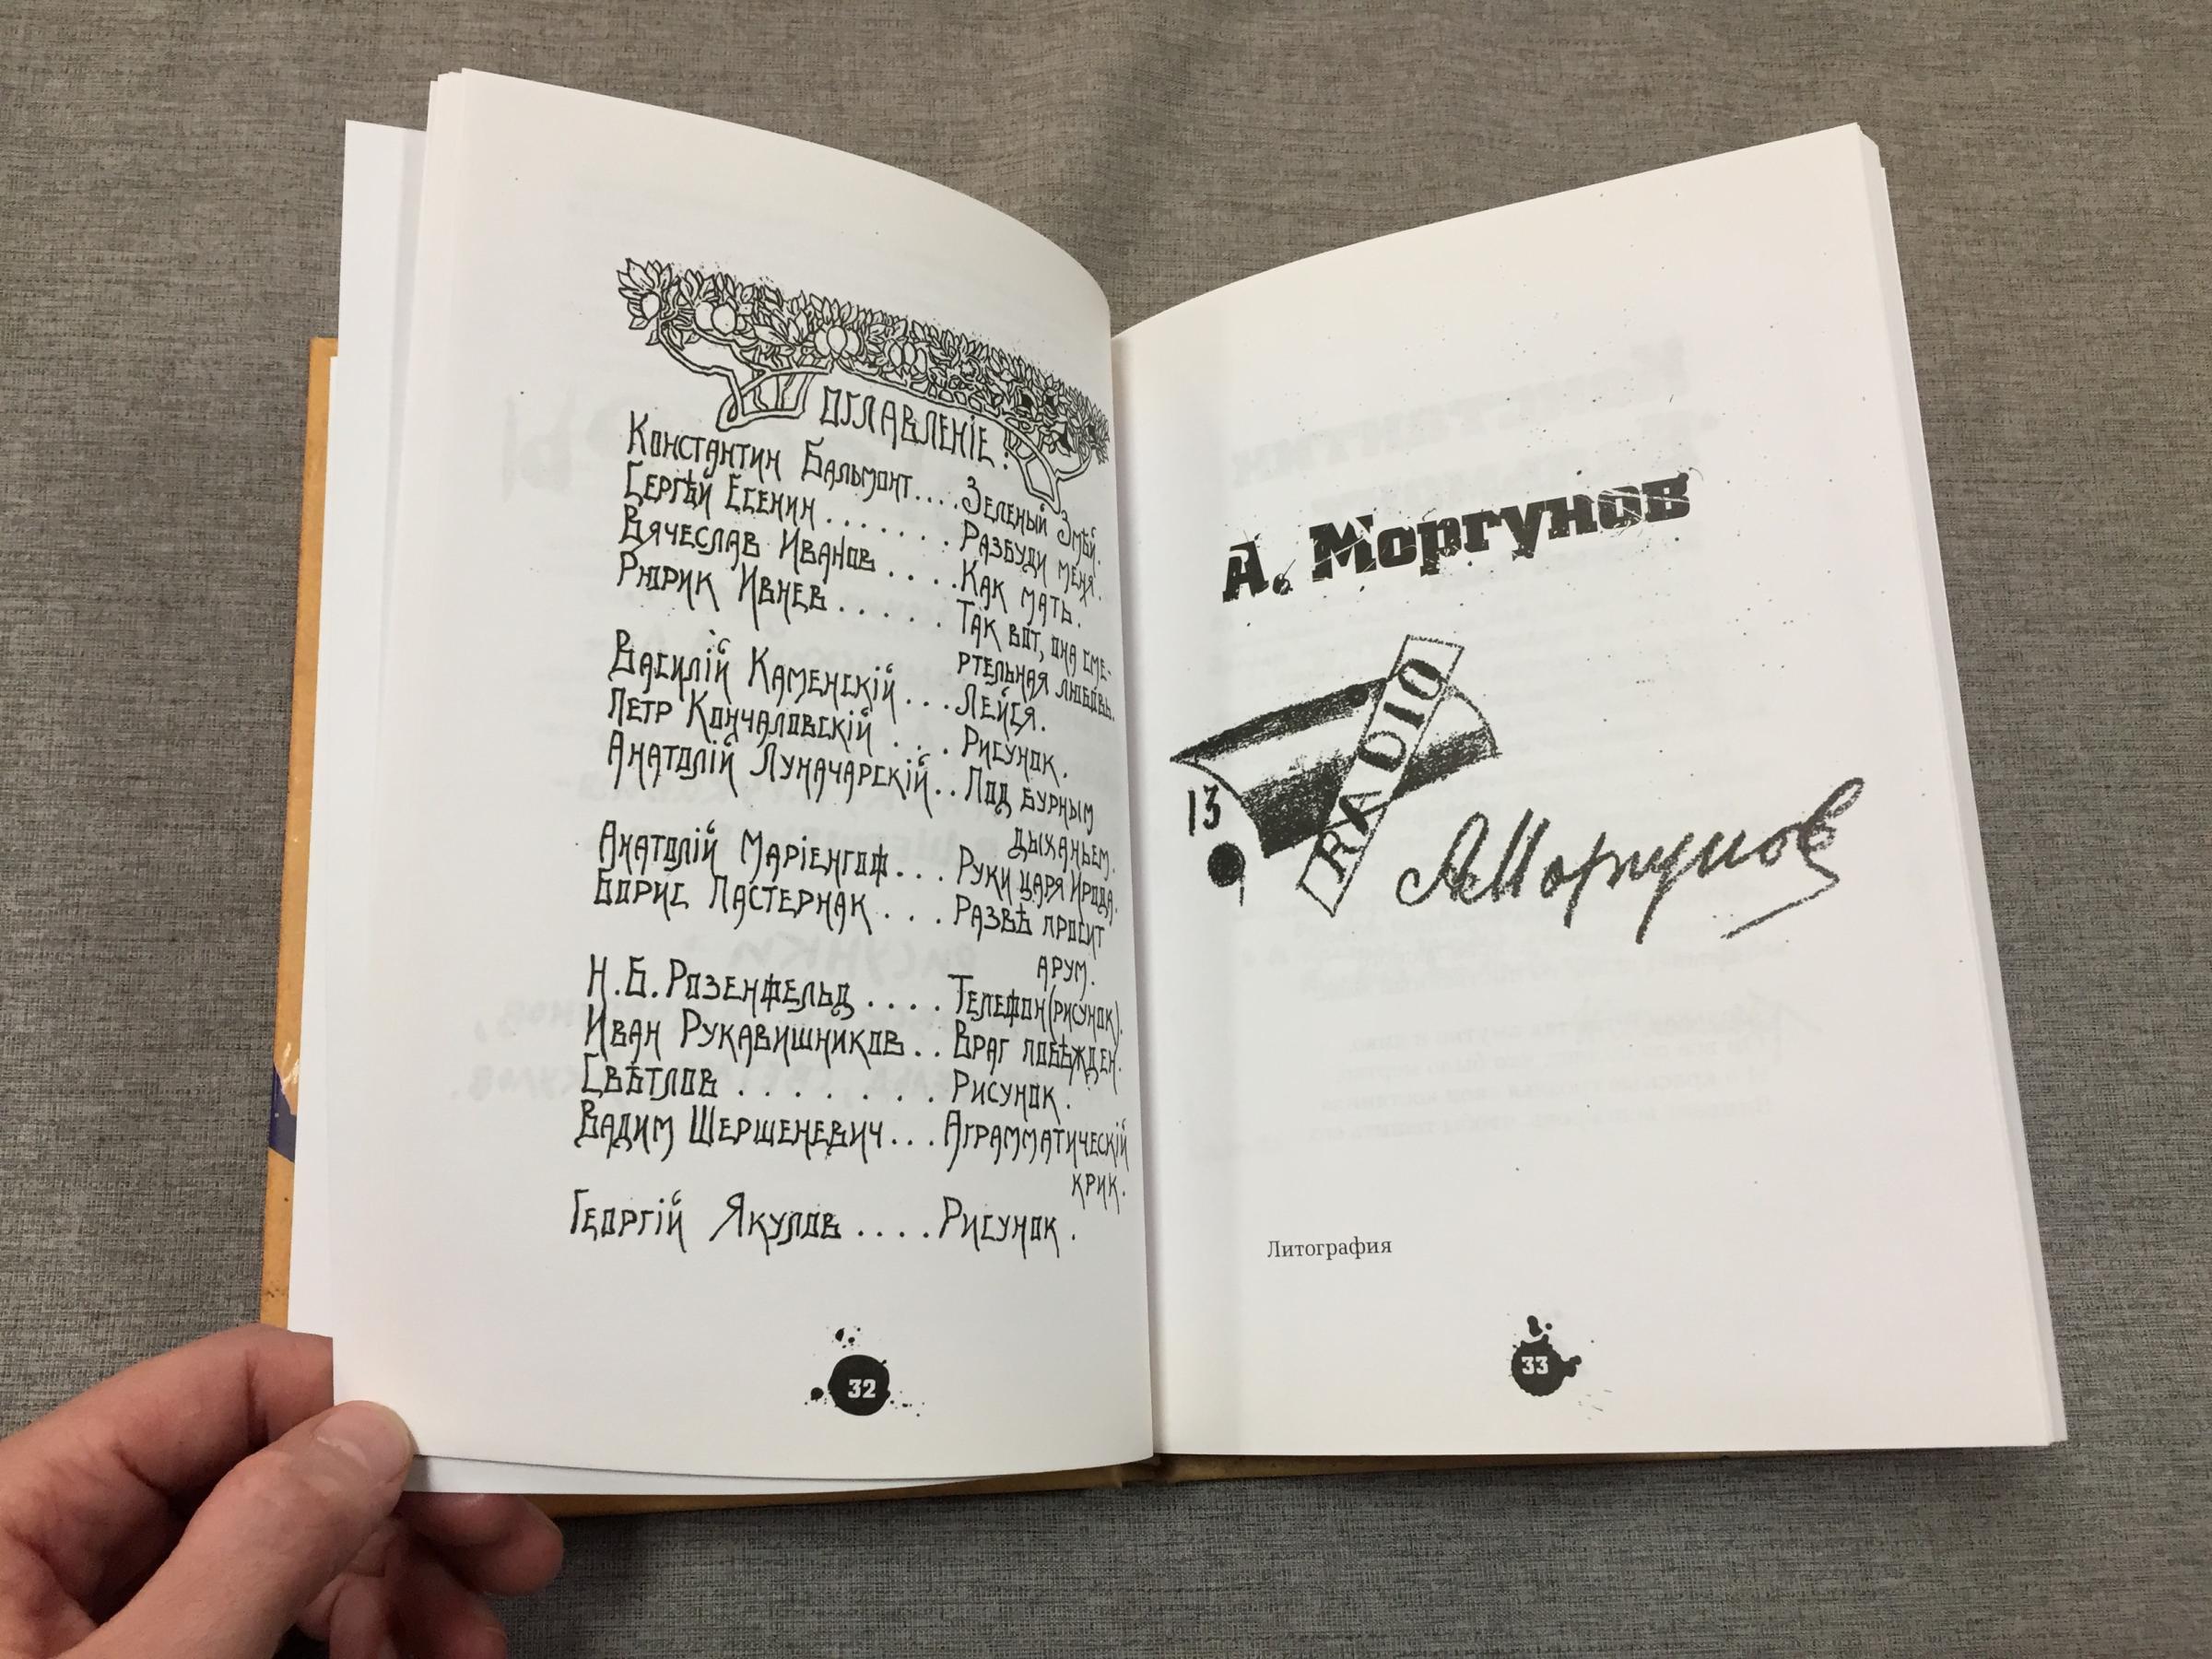 ОГЛАВЛЕНІЕ:
Константин Бальмонт.... Зеленый Змѣй.
Сергѣй Есенин ....... Разбуди меня.
Вячеслав Иванов .... Как мать.
Рюрик Ивнев ..... Так вот, она сме-
ртельная любовь.
Василій Каменскій ... Лейся.
Петр Кончаловскій ... Рисунок.
Анатолій Луначарскій .. Под бурным
дыханьем.
Анатолій Маріенгоф ... Руки царя Ирода.
Борис Пастернак ... Развѣ просит
арум.
Н. Б. Розенфельд .... Телефон (рисунок).
Иван Рукавишников .. Враг побѣжден.
Свѣтлов ........ Рисунок.
Вадим Шершеневич ... Аграмматическій
крик.
Георгій Якулов .... Рисунок.
32
А. Моргунов
RADIO
13
АМоргунов
Литография
33